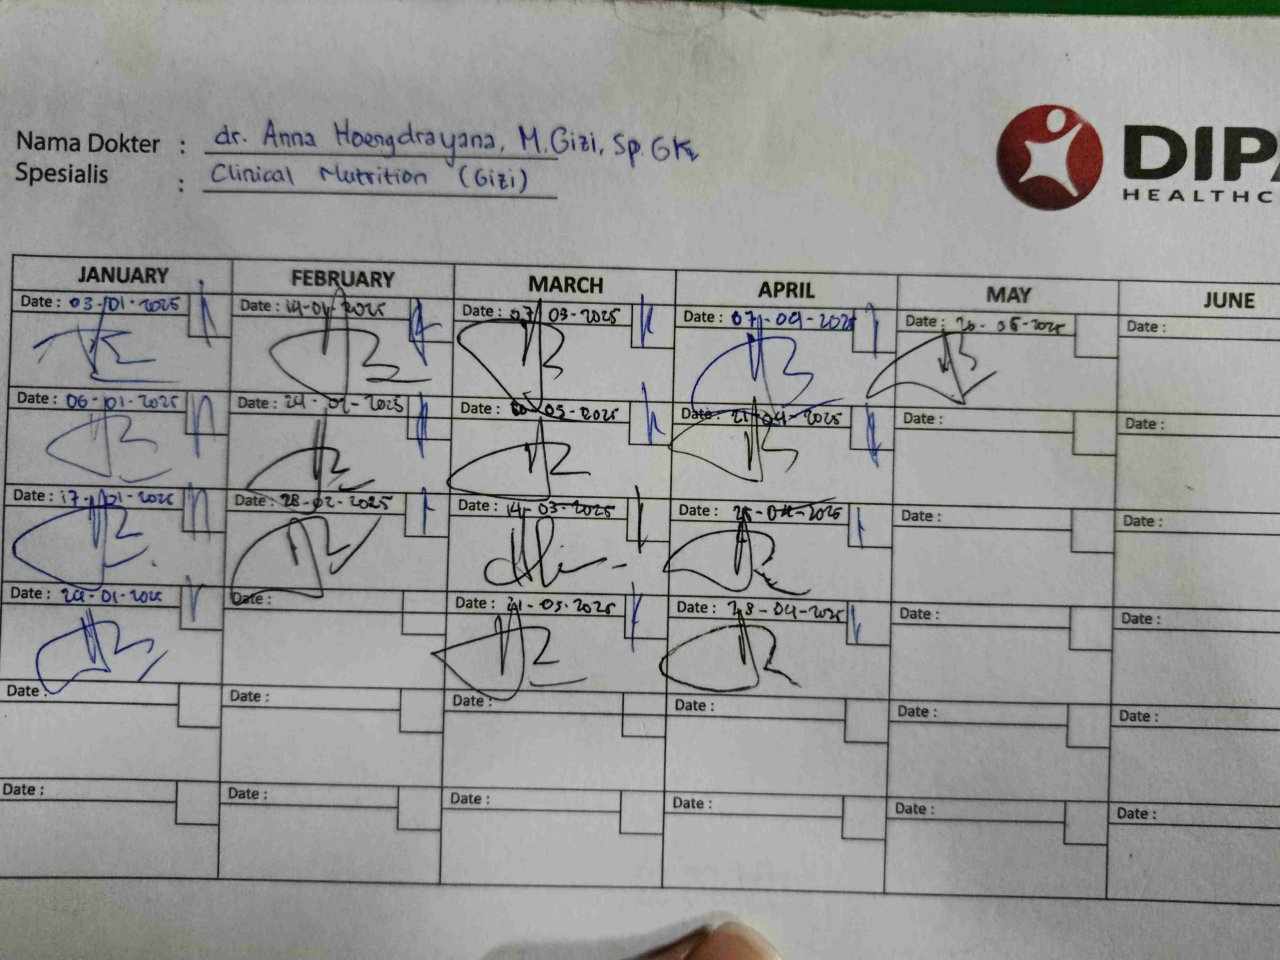 Nama Dokter : dr. Anna Hoengdrayana, M.Gizi, Sp.GK
Spesialis : Clinical Nutrition (Gizi)
DIPA
HEALTHC
JANUARY FEBRUARY MARCH APRIL MAY JUNE
Date : 03-01-2025 Date : 14-02-2025 Date : 07-03-2025 Date : 07-04-2025 Date : 26-05-2025 Date :
Date : 06-01-2025 Date : 24-02-2025 Date : 10-03-2025 Date : 21-04-2025 Date : Date :
Date : 17-01-2025 Date : 28-02-2025 Date : 14-03-2025 Date : 25-04-2025 Date : Date :
Date : 24-01-2025 Date : Date : 21-03-2025 Date : 28-04-2025 Date : Date :
Date : Date : Date : Date : Date : Date :
Date : Date : Date : Date : Date : Date :